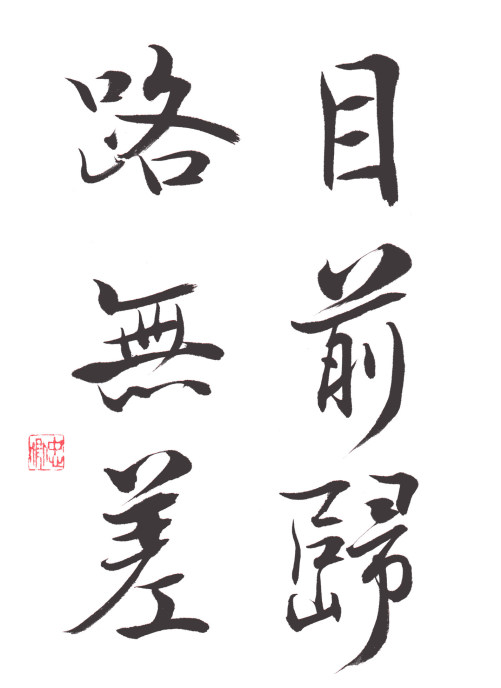 目前歸
路無差